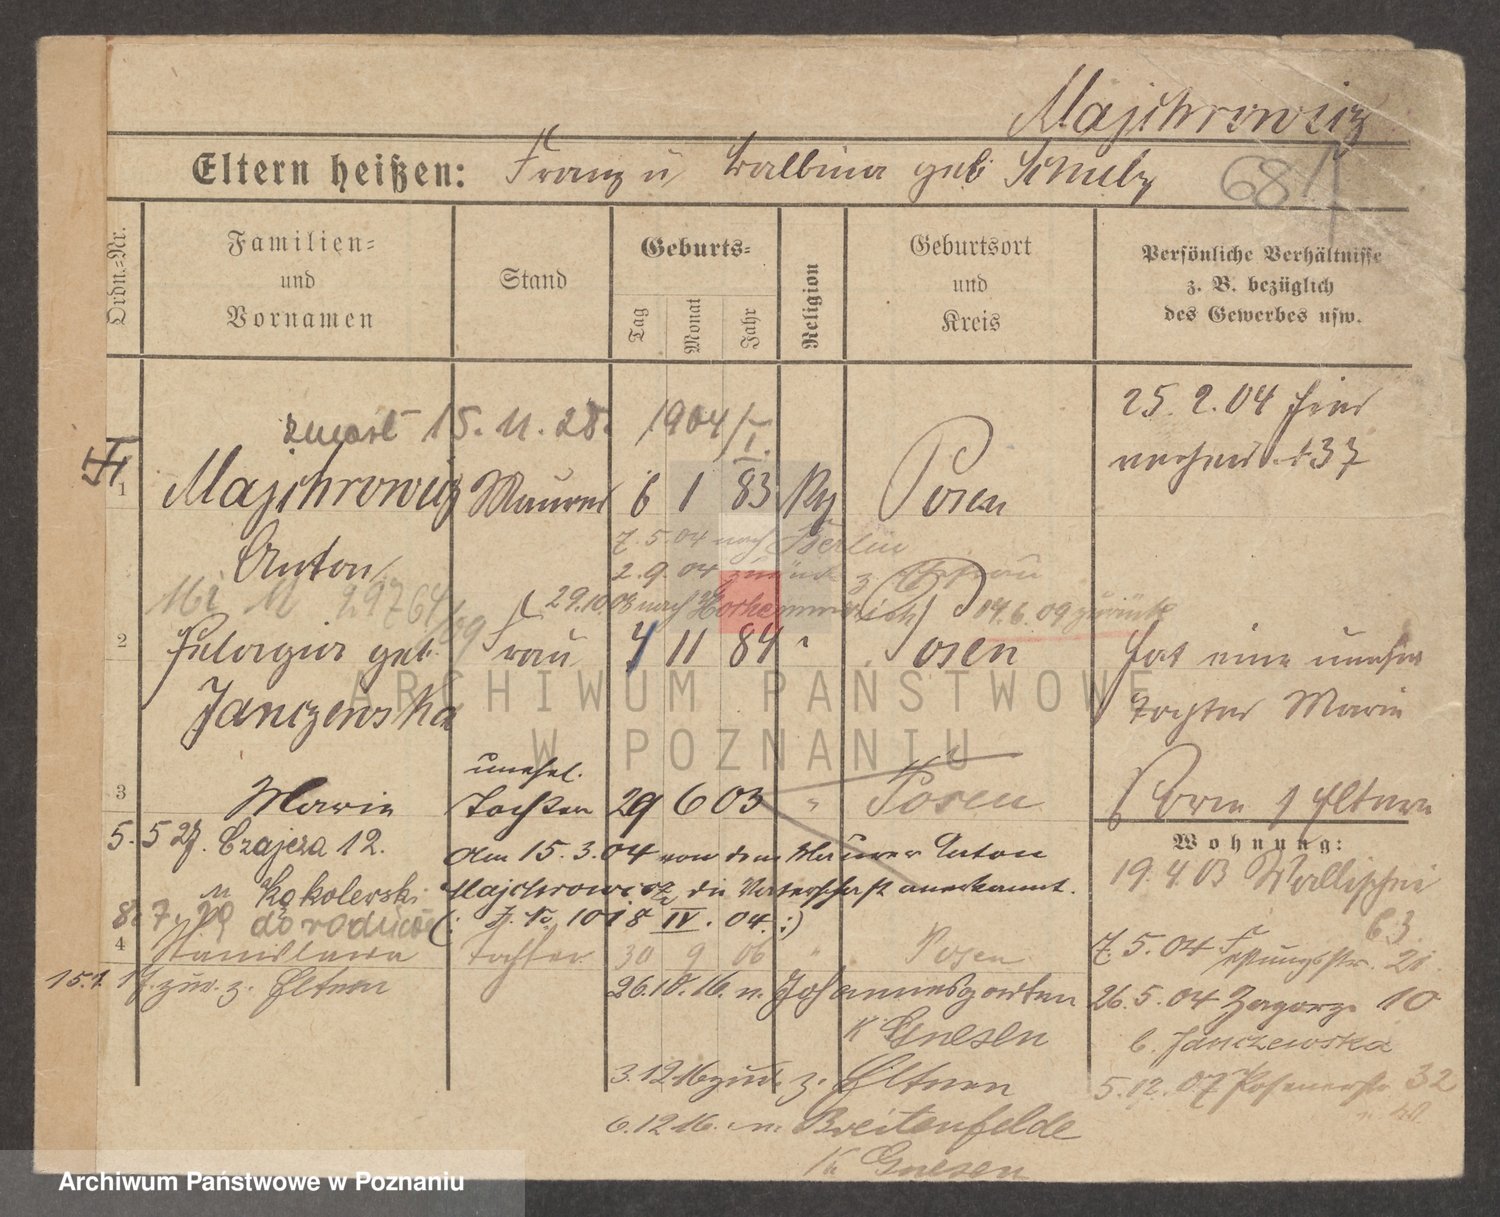 Majchrowicz
Eltern heißen: Franz u Balbina geb Schulz
Ordn.=Nr.
Familien=
und
Vornamen
Stand
Geburts=
Tag
Monat
Jahr
Religion
Geburtsort
und
Kreis
Persönliche Verhältnisse
z. B. bezüglich
des Gewerbes usw.
zmarł 15. 11. 28. 1904/I.
25. 2. 04
1 Majchrowicz Maurer 6 1 83 Posen
Anton
7. 5. 04 nach Berlin
2. 9. 04 zurück z. Ehefrau
29.10 08 nach 04. 6. 09 zurück
2 Pelagia geb. Frau 7 11 84 " Posen
Janczewska
hat eine unehel
Tochter Marie
unehel.
3 Marie Tochter 29 6 03 " Posen
1 Eltern
Wohnung:
5. 5 27. Czajcza 12.
Am 15. 3. 04 von dem Maurer Anton
19. 4. 03 Wallischei
63
Kąkolewski
Majchrowicz die Vaterschaft anerkannt.
8. 7. 29 do rodziców
(: J. No. 1018 IV. 04. :)
4 Stanislawa Tochter 30 9 06 " Posen
7. 5. 04
15.1. 17. zur. z. Eltern
26.10. 16. n. Johannesgarten
K Gnesen
26. 5. 04 Zagorze 10
b. Janczewska
3.12 16 zurück z. Eltern
5. 12. 07 Posenerstr 32
6. 12 16. n. Breitenfelde
K Gnesen
ARCHIWUM PAŃSTWOWE
W POZNANIU
Archiwum Państwowe w Poznaniu